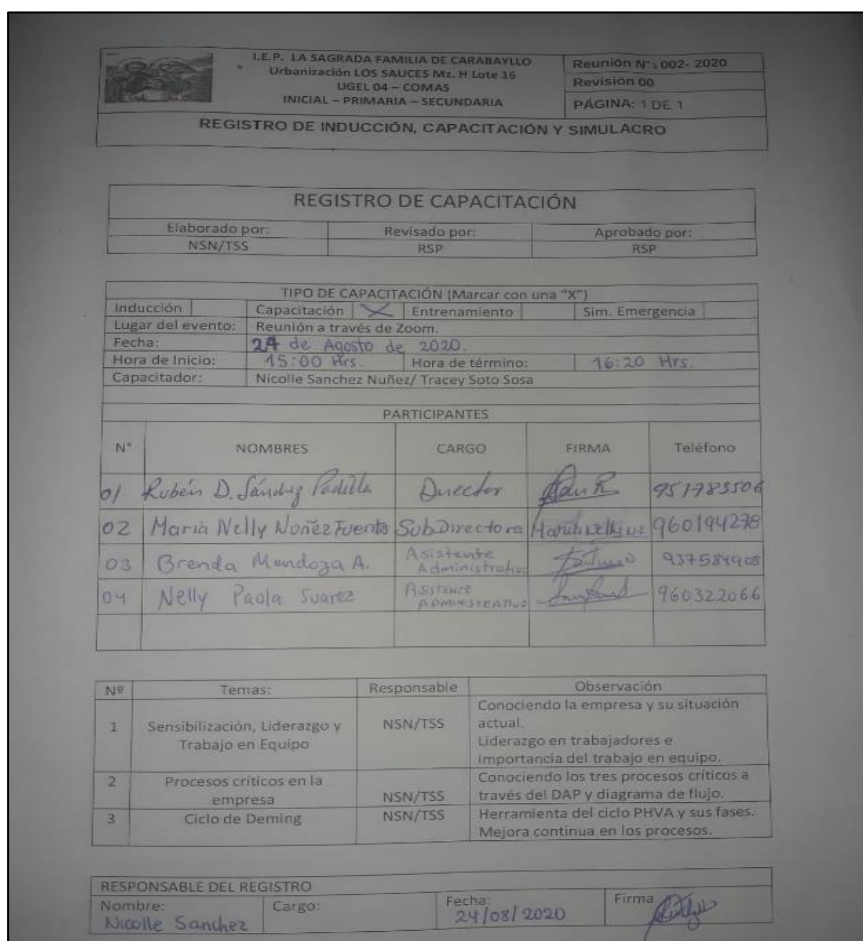 I.E.P. LA SAGRADA FAMILIA DE CARABAYLLO
Urbanización LOS SAUCES Mz. H Lote 16
UGEL 04 – COMAS
INICIAL – PRIMARIA – SECUNDARIA
Reunión N°: 002- 2020
Revisión 00
PÁGINA: 1 DE 1
REGISTRO DE INDUCCIÓN, CAPACITACIÓN Y SIMULACRO
REGISTRO DE CAPACITACIÓN
Elaborado por: Revisado por: Aprobado por:
NSN/TSS RSP RSP
TIPO DE CAPACITACIÓN (Marcar con una "X")
Inducción Capacitación X Entrenamiento Sim. Emergencia
Lugar del evento: Reunión a través de Zoom.
Fecha: 24 de Agosto de 2020.
Hora de Inicio: 15:00 Hrs. Hora de término: 16:20 Hrs.
Capacitador: Nicolle Sanchez Nuñez/ Tracey Soto Sosa
PARTICIPANTES
N° NOMBRES CARGO FIRMA Teléfono
01 Rubén D. Sánchez Padilla Director 951783506
02 Maria Nelly Nuñez Fuents SubDirectora Maria Nelly 960194278
03 Brenda Mendoza A. Asistente Administrativo 937584908
04 Nelly Paola Suarez Asistente Administrativo 960322066
Nº Temas: Responsable Observación
1 Sensibilización, Liderazgo y Trabajo en Equipo NSN/TSS Conociendo la empresa y su situación
actual.
Liderazgo en trabajadores e
importancia del trabajo en equipo.
2 Procesos críticos en la empresa NSN/TSS Conociendo los tres procesos críticos a
través del DAP y diagrama de flujo.
3 Ciclo de Deming NSN/TSS Herramienta del ciclo PHVA y sus fases.
Mejora continua en los procesos.
RESPONSABLE DEL REGISTRO
Nombre: Cargo: Fecha: Firma
Nicolle Sanchez 24/08/2020